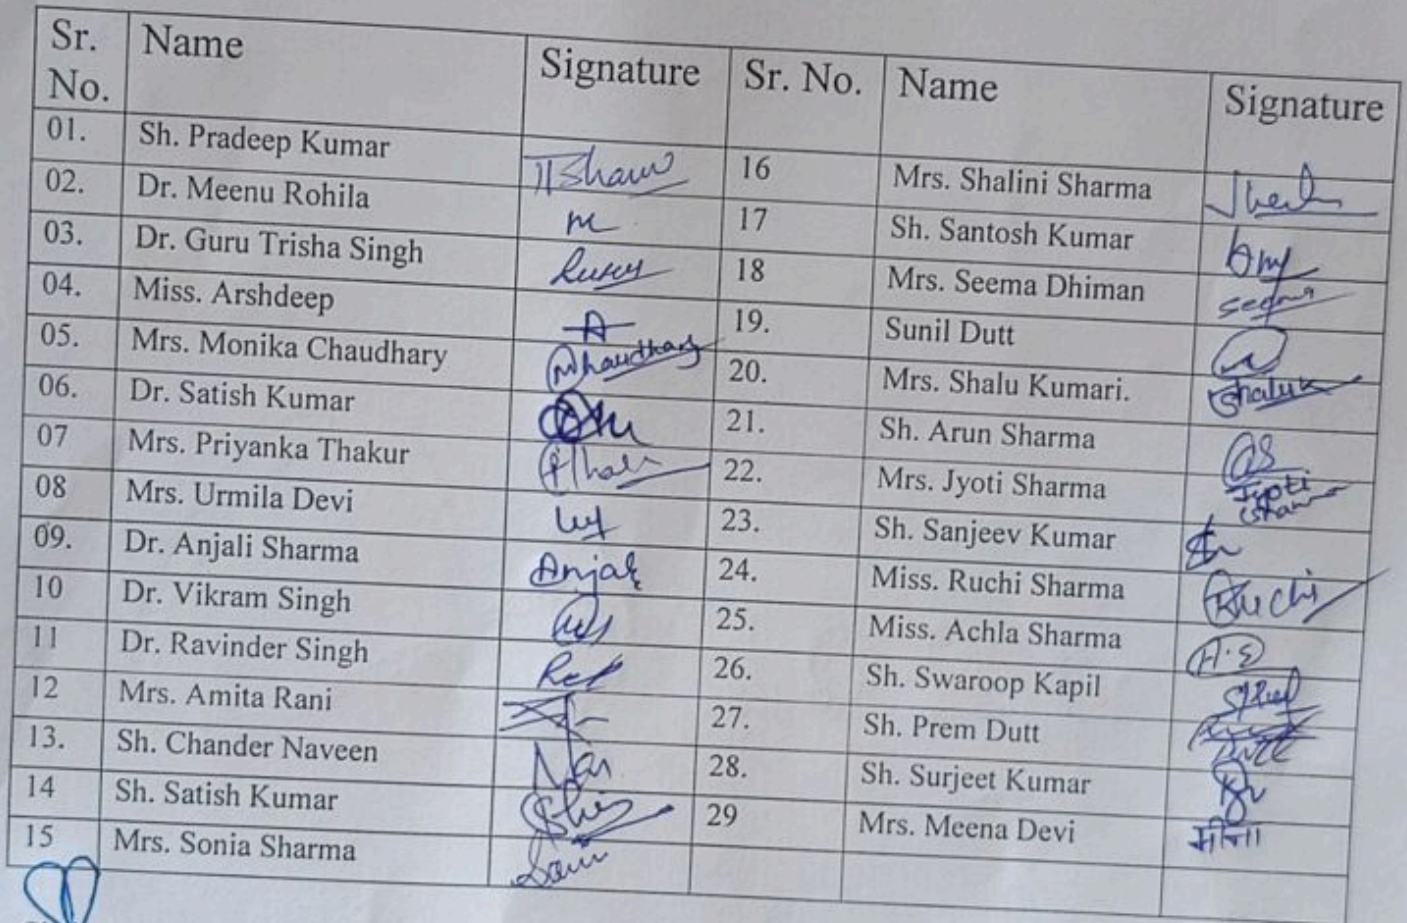 Sr. No. Name Signature Sr. No. Name Signature
01. Sh. Pradeep Kumar 16 Mrs. Shalini Sharma
02. Dr. Meenu Rohila m 17 Sh. Santosh Kumar
03. Dr. Guru Trisha Singh 18 Mrs. Seema Dhiman
04. Miss. Arshdeep A 19. Sunil Dutt
05. Mrs. Monika Chaudhary Mchaudhary 20. Mrs. Shalu Kumari.
06. Dr. Satish Kumar 21. Sh. Arun Sharma AS
07 Mrs. Priyanka Thakur 22. Mrs. Jyoti Sharma Jyoti
08 Mrs. Urmila Devi 23. Sh. Sanjeev Kumar
09. Dr. Anjali Sharma 24. Miss. Ruchi Sharma Ruchi
10 Dr. Vikram Singh 25. Miss. Achla Sharma
11 Dr. Ravinder Singh 26. Sh. Swaroop Kapil
12 Mrs. Amita Rani 27. Sh. Prem Dutt
13. Sh. Chander Naveen 28. Sh. Surjeet Kumar
14 Sh. Satish Kumar 29 Mrs. Meena Devi मीना
15 Mrs. Sonia Sharma